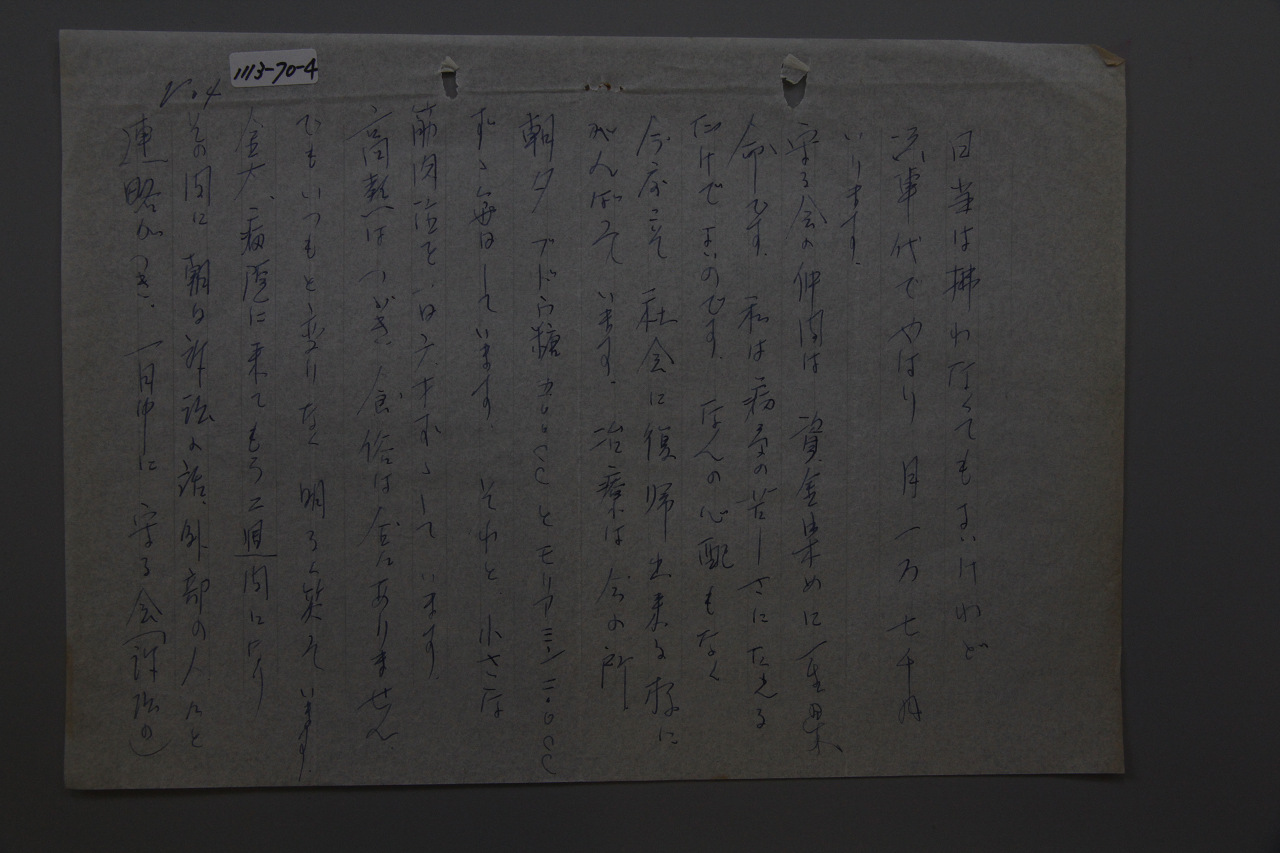 1113-70-4
No.4
日当は拂わなくてもよいけれど
汽車代でやはり 月一万七千円
いります。
守る会の仲間は 資金集めに一生懸
命です。 私は病気の苦しさにたえる
だけでよいのです。なんの心配もなく
今度こそ 社会に復帰出来る様に
がんばって います。治療は今の所
朝夕 ブドウ糖 五〇〇CCとモリアミン 三〇〇CC
ずつ毎日しています。 それと小さな
筋肉注を一日六本ずつして います。
高熱はつづき、食欲は全くありません。
でもいつもと変りなく 明るく笑っています。
金大病院に来てもう二週間になり
その間に 朝日訴訟の話、外部の人たと
連略がつき、一日中に 守る会(訴訟の)